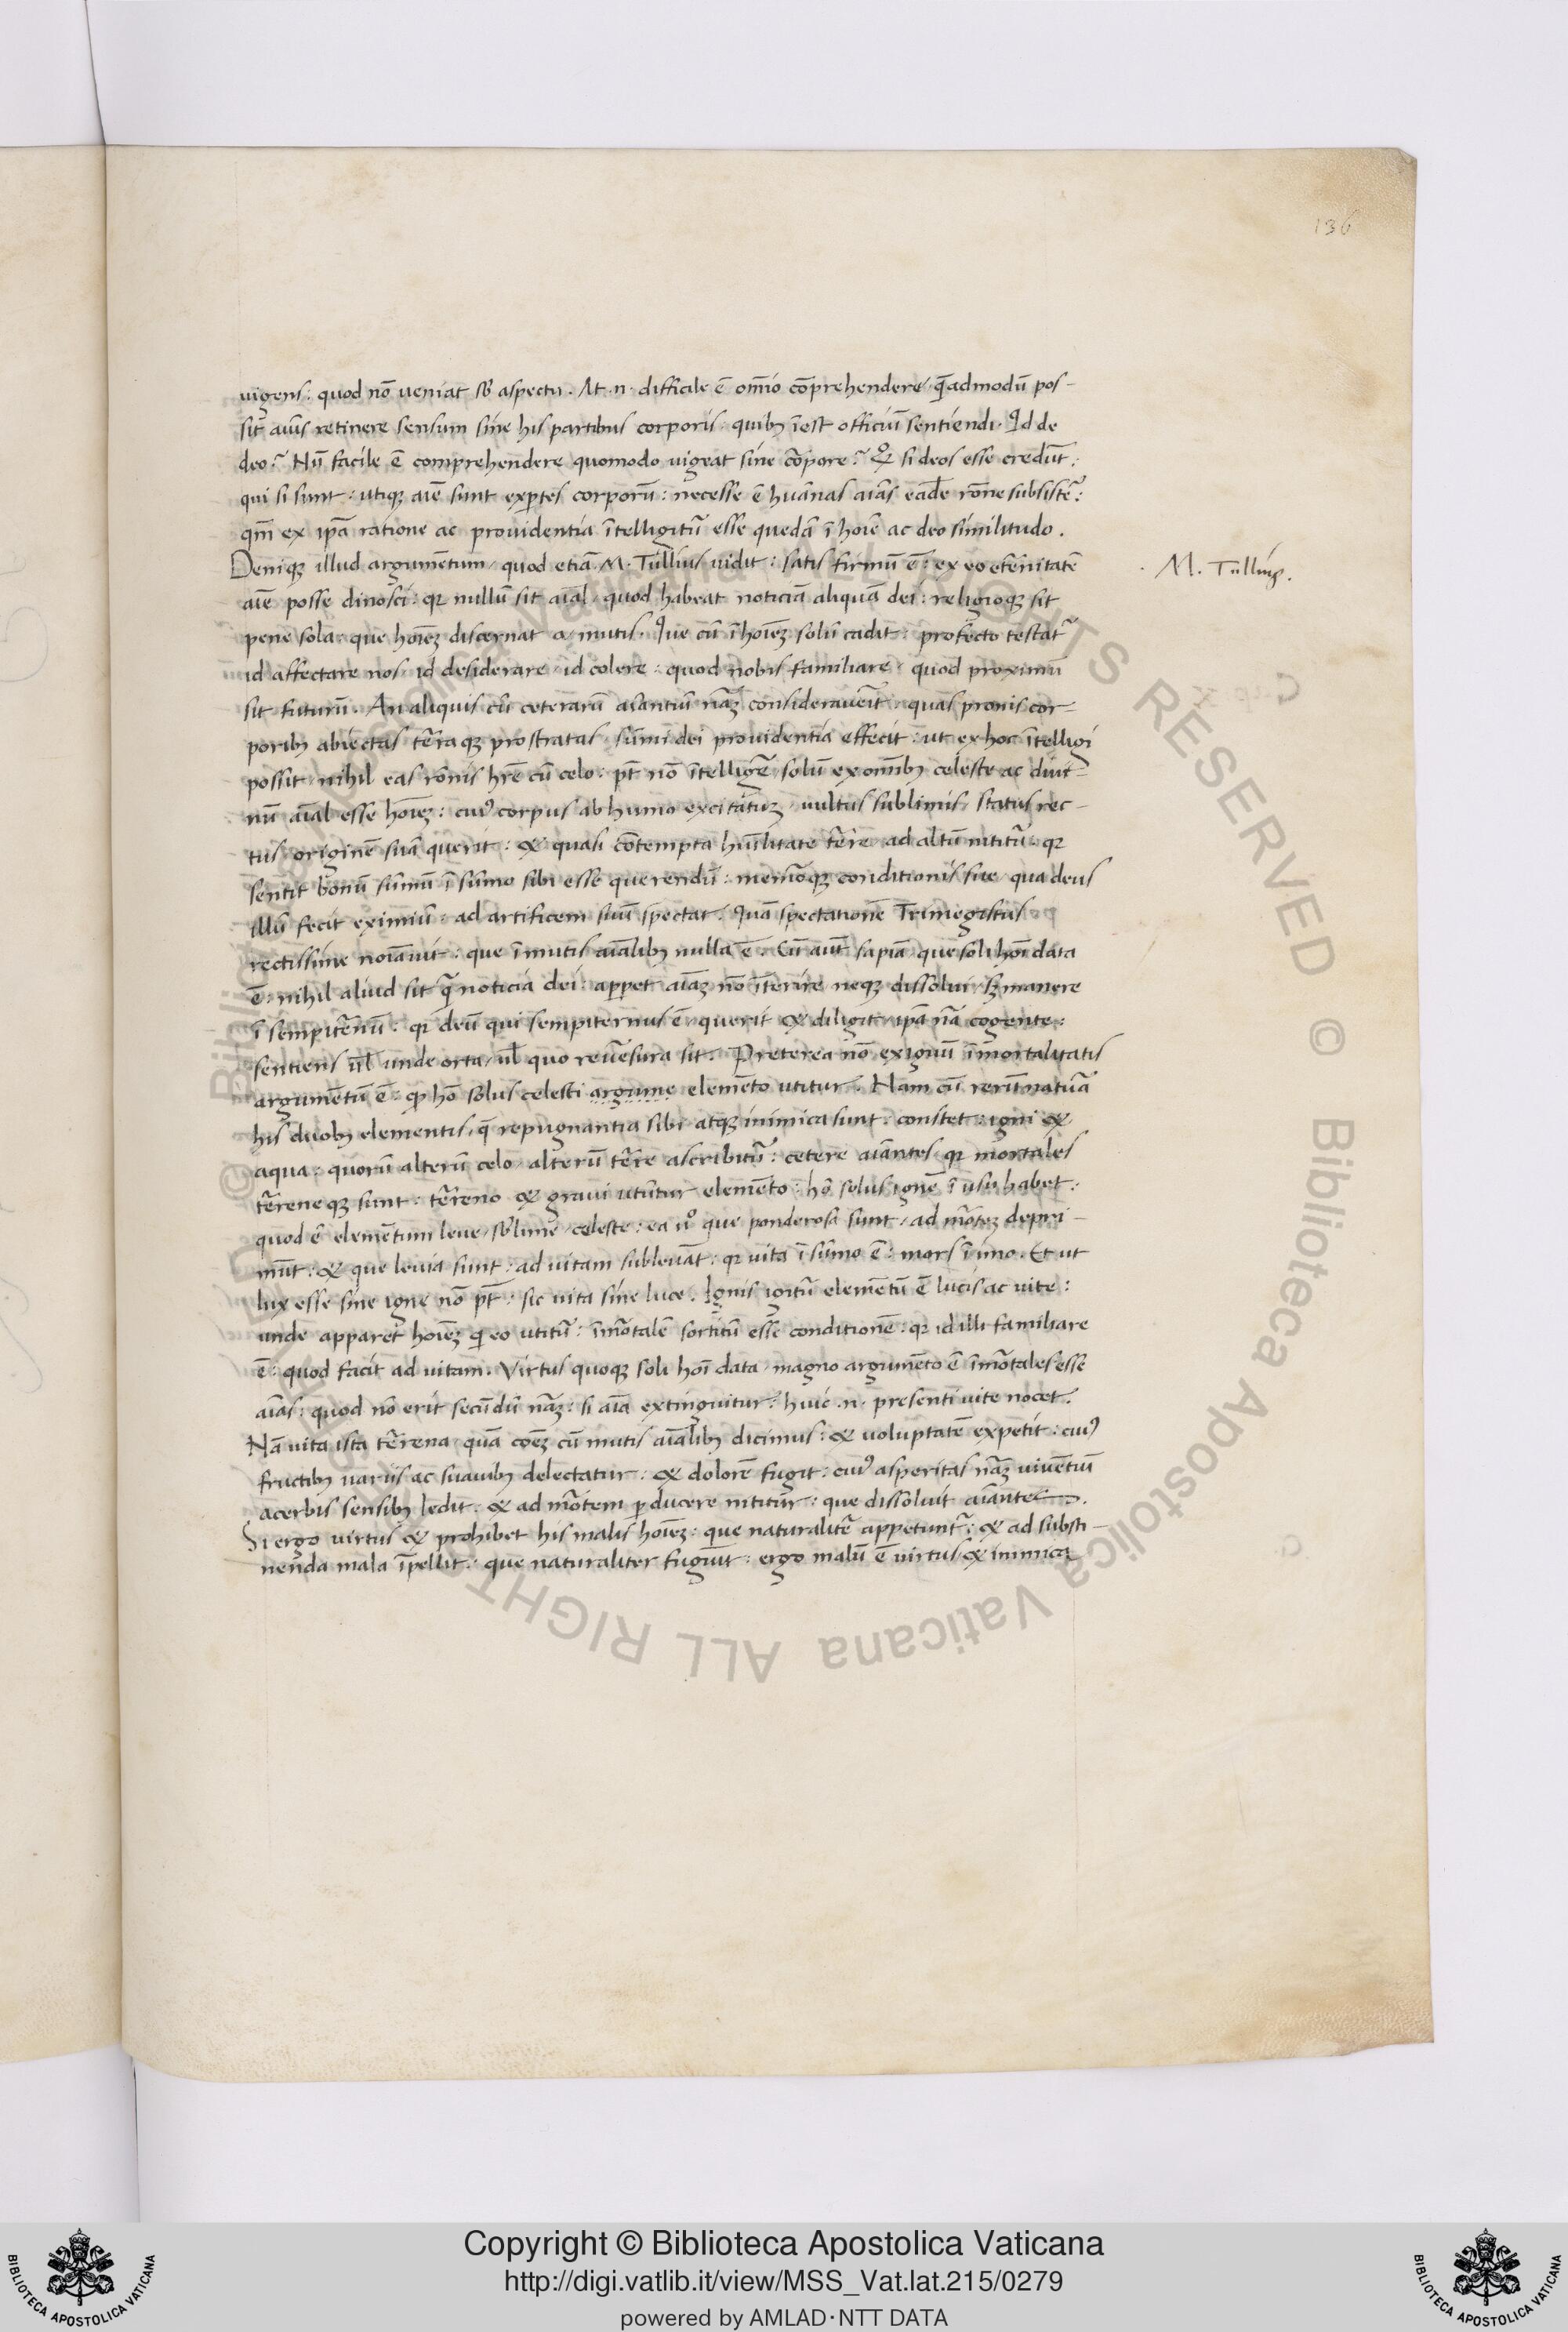 136
vigens: quod nō veniat sb aspectu. At .n. difficile ē om̄io cōprehendere q̄admodū pos-
sit aius retinere sensum sine his partibus corporis quibꝫ īest officiū sentiendi. Id de
deo? Nū facile ē comprehendere quomodo vigeat sine cōpore? Qº si deos esse credūt:
qui si sunt: utiqꝫ aīe sunt exp̱tes corporū: necesse ē huānas aīas eadē rōne subsistē:
qm̄ ex ip̄a ratione ac prouidentia ītelligitū esse quedā ī hoīe ac deo similitudo.
Deniqꝫ illud argumētum quod etiā M. Tullius vidit: satis firmū ē: ex eo etērnitatē
aīe posse dinosci: qꝛ nullū sit aīal quod habeat noticiā aliquā dei: religioqꝫ sit
pene sola que hoīeꝫ discernat a mutis. Que cū ī hoīeꝫ solū cadit: profecto testat᷑
id affectare nos id desiderare id colere: quod nobis familiare quod proximū
sit futurū. An aliquis cū ceterarū aīantiū nāꝫ considerauērit quas pronis cor-
poribꝫ abiectas tērraqꝫ prostratas sūmi dei prouidentia effecit: ut ex hoc ītelligi
possit nihil eas rōnis hr̄e cū celo: pt̄ nō ītelligē solū ex om̄ibꝫ celeste ac diui-
nū aīal esse hoīeꝫ: cuiꝰ corpus ab humo excitatuꝫ vultus sublimis status rec-
tus originē suā querit: & quasi cōtempta huīlitate tēre ad altū nititū qꝛ
sentit bonū sūmū ī sūmo sibi esse querendū: memōqꝫ conditionis sue qua deus
illū fecit eximiū ad artificem suū spectat. Quā spectationē Trimegistus
rectissime noīauit: que ī mutis aīalibꝫ nulla ē. Cū aut̄ sapīa que soli hoī data
ē: nihil aliud sit q̄ noticia dei: apparet aīaꝫ nō īterire neqꝫ dissolui sꝫ manere
ī sempitērnū: qꝛ deū qui sempiternus ē querit & diligit ip̄a nā cogente:
sentiens ul̄ unde orta ul̄ quo reuēsura sit. Preterea nō exiguū īmortalitatis
argumētū ē: ꝙ hō solus celesti argume elemēto utitur. Nam cū rerū natuā
his duobꝫ elementis q̄ repugnantia sibi atqꝫ inimica sunt constet: igni &
aqua: quorū alterū celo alterū tēre ascribitū: cetere aīantes qꝛ mortales
tēreneqꝫ sunt: tēreno & graui utūtur elemēto: hō solus ignē ī usu habet:
quod ē elemētum leue sb̄lime celeste: ea uº que ponderosa sunt ad mōteꝫ depri-
mūt: & que leuia sunt: ad vitam subleuāt: qꝛ vita ī sūmo ē: mors ī imo. Et ut
lux esse sine igne nō pt̄: sic vita sine luce. Ignis igitū elemētū ē lucis ac vite:
unde apparet hoīeꝫ q̇ eo utitū: īmōtalē sortitū esse conditionē: qꝛ id illi familiare
ē: quod facit ad vitam. Virtus quoqꝫ soli hoī data magno argumēto ē īmōtales esse
aīas: quod nō erit secūdū nāꝫ: si aīa extinguitur: huic .n. presenti vite nocet.
Nā vita ista tērena quā coēꝫ cū mutis aīalibꝫ dicimus: & voluptatē expetit: cuiꝰ
fructibꝫ variis ac suauibꝫ delectatur: & dolorē fugit: cuiꝰ asperitas nāꝫ viuētiū
acerbis sensibꝫ ledit: & ad mōtem p̱ducere nititur: que dissoluit aīantes.
Si ergo virtus & prohibet his malis hoīeꝫ: que naturalitē appetunt᷑: & ad susti-
nenda mala īpellit: que naturaliter fugiūt: ergo malū ē virtus & inimica
M. Tulliꝰ.
© Biblioteca Apostolica Vaticana ALL RIGHTS RESERVED
Copyright © Biblioteca Apostolica Vaticana
http://digi.vatlib.it/view/MSS_Vat.lat.215/0279
powered by AMLAD·NTT DATA
BIBLIOTECA APOSTOLICA VATICANA
BIBLIOTECA APOSTOLICA VATICANA